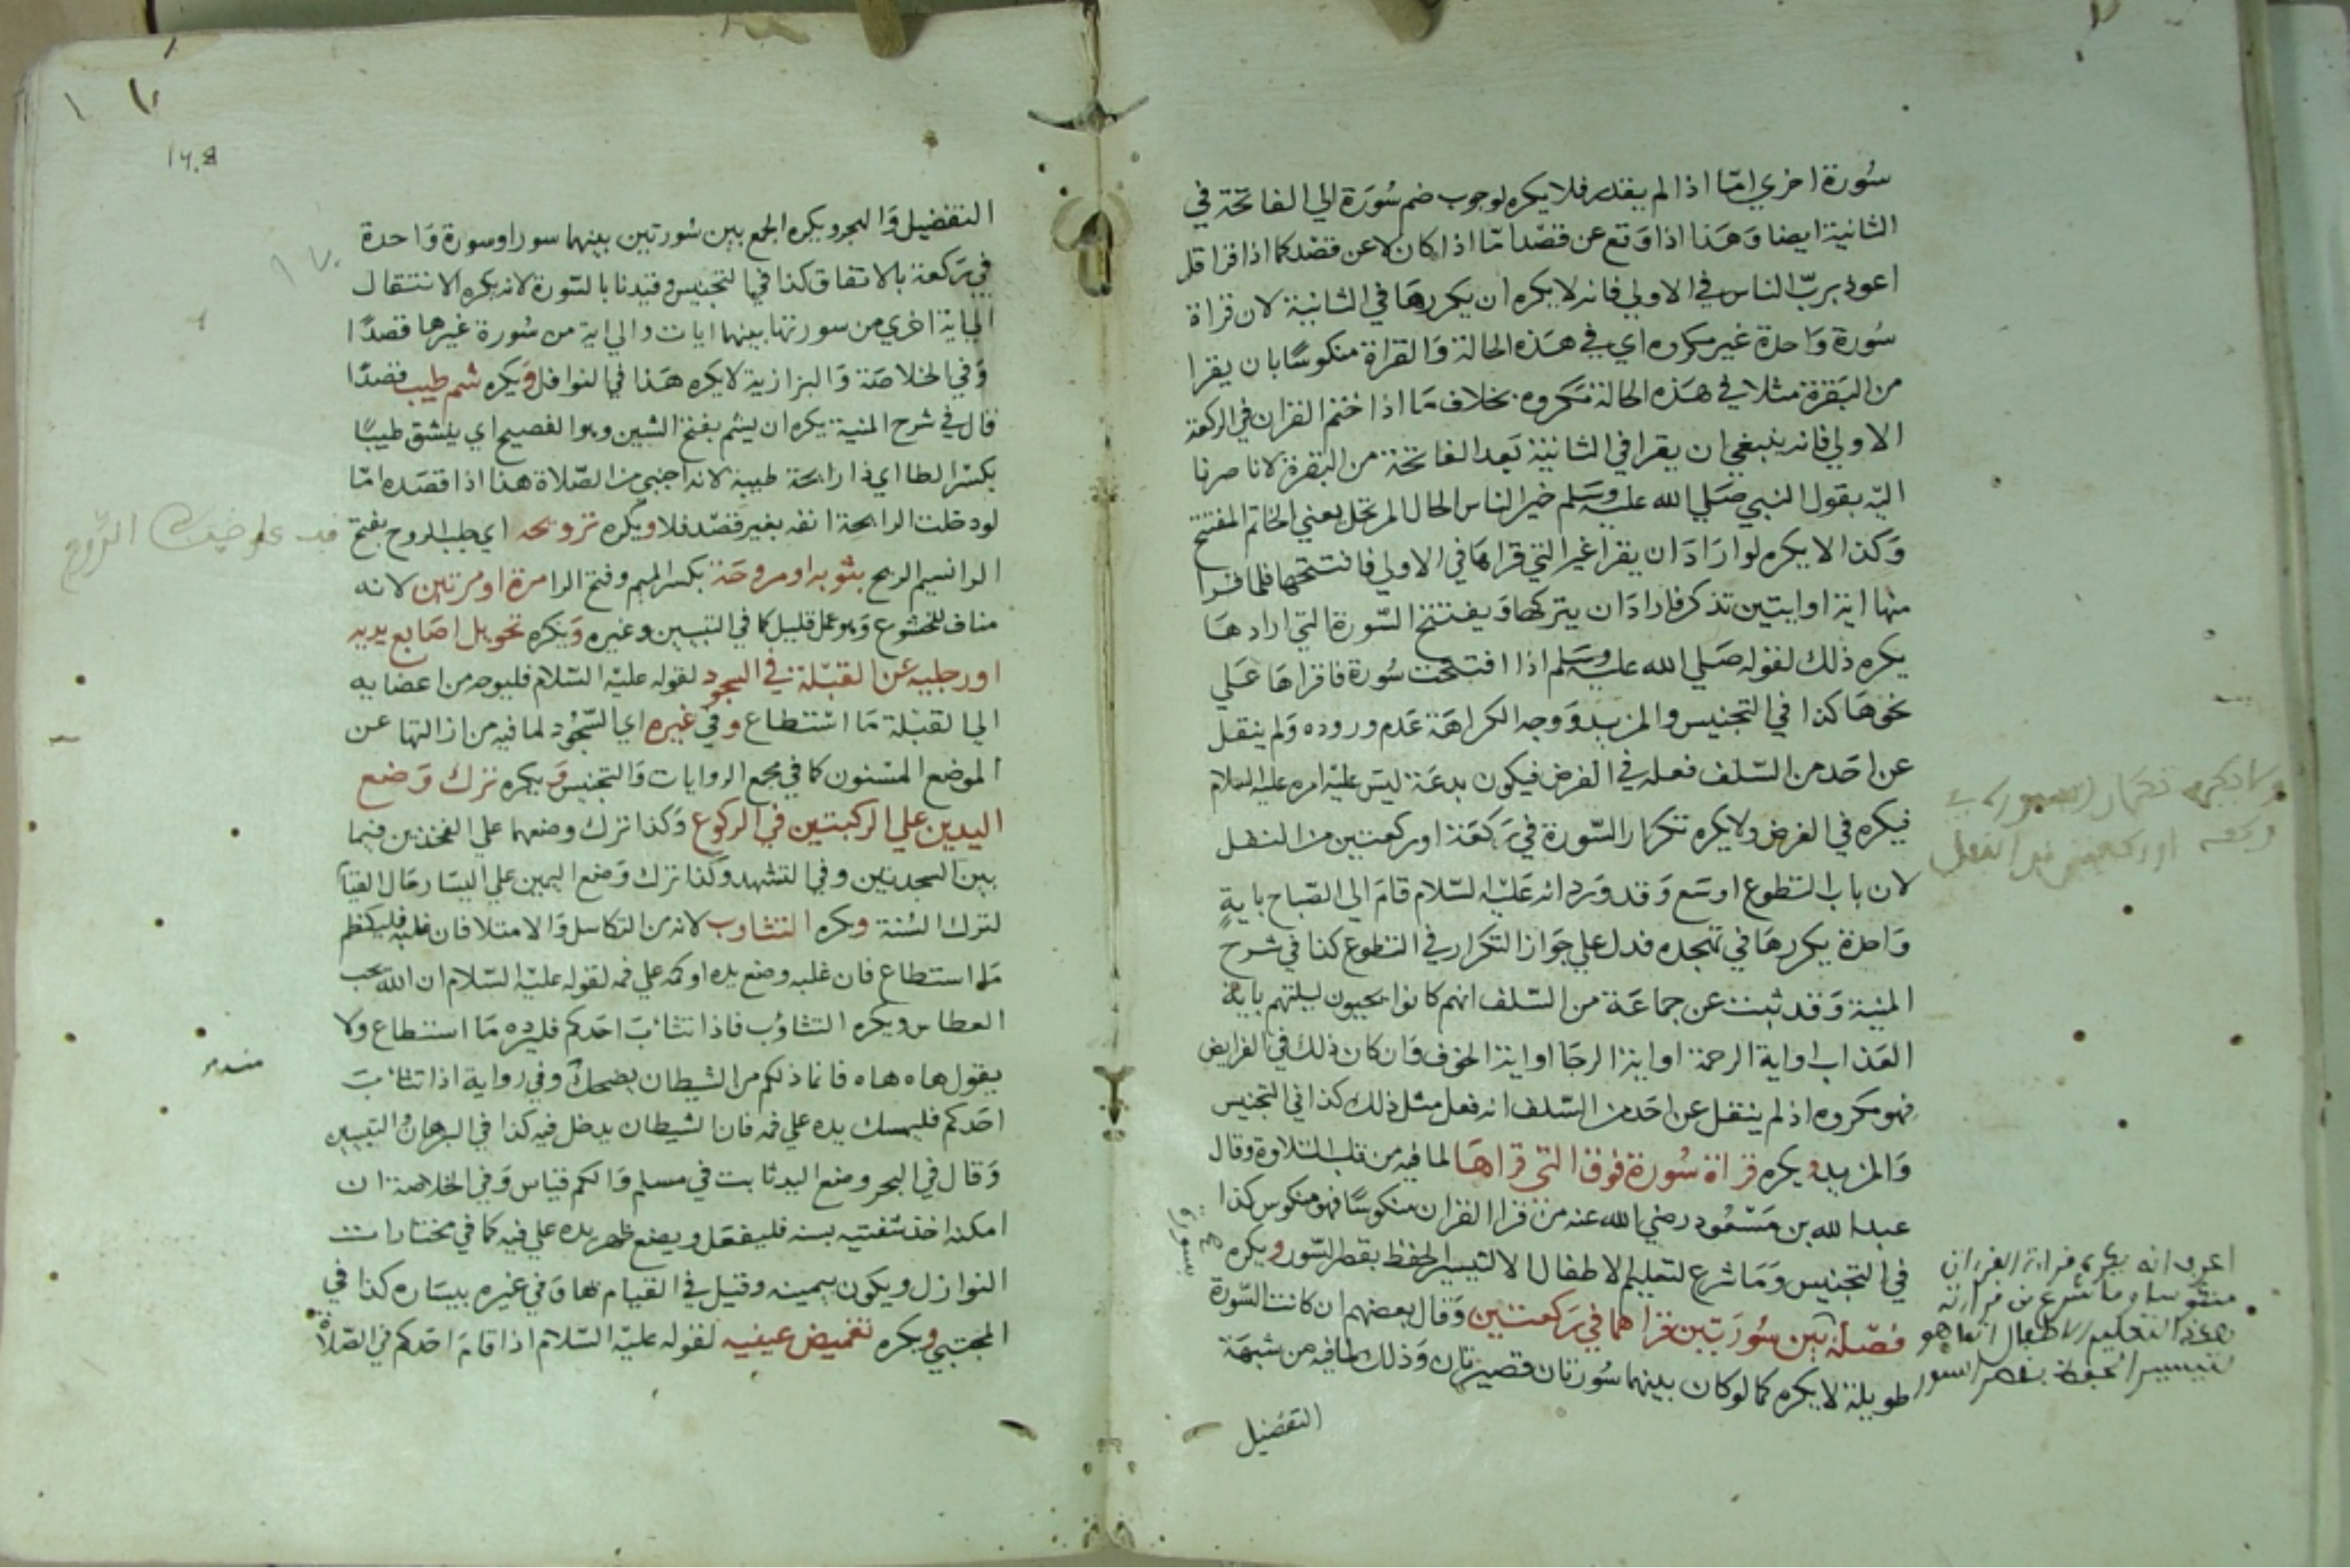 سُورة اخري امّا اذا لم يقدر فلا يكره لوجوب ضم سُورَة الي الفاتحة في
الثانية ايضا وَهَذا اذا وَقع عن قصْد امّا اذا كان لا عن قصْد كما اذا قرا قل
اعوذ بربّ الناس في الاولي فانه لا يكره ان يكررهَا في الثانية لان قراة
سُورة وَاحدة غير مكروه اي في هَذه الحالة وَالقراة منكوسًا بان يقرا
من البَقرة مثلا في هَذه الحالة مَكروه بخلاف مَا اذا ختم القران في الركعة
الاولي فانه ينبغي ان يقرا في الثانية بَعد الفاتحة من البقرة لانا صرنا
اليه بقول النبي صَلي الله عليه وسَلم خير الناس الحال المرتحل يعني الخاتم المفتتح
وَكذا الا يكره لو ارَادَ ان يقرا غير التي قراهَا في الاولي فافتتحها فلما قرا
منها اية او ايتين تذكر فارادَ ان يتركها وَيفتتح السّورة التي ارادهَا
يكره ذلك لقوله صَلي الله عليه وسَلم اذا افتتحت سُورة فاقراهَا عَلي
نحوهَا كذا في التجنيس والمزيد وَوجه الكراهَة عَدم وروده وَلم ينقل
عن احَد من السّلف فعله في الفرض فيكون بدعَة ليسَ عليْه امره عليه السلام
فيكره في الفرض ولا يكره تكرار السّورة في رَكعَة او ركعتين من النفل
لان باب التطوع اوسَع وَقد وَرد انه عَليْه السّلام قامَ الي الصّباح باية
وَاحدة يكررهَا في تهجده فدل علي جَواز التكرار في التطوع كذا في شرح
المنية وَقد ثبت عن جماعَة من السّلف انهم كانوا يحيون ليلتهم باية
العَذاب او اية الرحمة او اية الرجَا او اية الخوف وَان كان ذلك في الفرايض
فهو مكروه اذ لم ينقل عن احَد من السّلف انه فعل مثل ذلك كذا في التجنيس
وَالمزيد ويكره قراة سُورة فوق التي قراهَا لما فيه من قلب التلاوة وقال
عبد الله بن مَسْعُود رضي الله عنه من قرا القران منكوسًا فهو منكوس كذا
في التجنيس وَمَا شرع لتعليم الاطفال الا لتيسير الحفظ بقصر السّور ويكره
فصْله بين سُورَتين قراهما في رَكعتين وَقال بعضهم ان كانت السّورة
طويلة لا يكره كما لو كان بينهما سُورتان قصيرتان وَذلك لما فيه من شبهَة
التفضيل
سورة
تكرار السورة
ركعة او ركعتين من النفل
اعرف انه يكره قراة القران
منكوسا وما شرع من قراته
التعليم الاطفال انما هو
تيسير الحفظ بقصر السور
التفضيل وَالهجر ويكره الجمع بين سُورتين بينهما سور او سورة وَاحدة
في رَكعة بالاتفاق كذا في التجنيس وقيدنا بالسّورة لانه يكره الانتقال
الي اية اخري من سورتها بينهما ايات والي اية من سُورة غيرها قصدًا
وَفي الخلاصَة وَالبزازية لا يكره هَذا في النوافل وَيكره شم طيب قصدًا
قال في شرح المنية يكره ان يشم بفتح الشين وهو الفصيح اي ينشق طيبًا
بكسْر الطا اي ذا رايحة طيبة لانه اجنبي من الصّلاة هذا اذا قصَده امّا
لو دخلت الرايحة انفه بغير قصْد فلا ويكره ترويحه اي جلب الروح بفتح
الرا نسيم الريح بثوبه او مروحَة بكسر الميم وفتح الرا مرة او مرتين لانه
مناف للخشوع وَهو عمل قليل كما في التبيين وغيره وَيكره تحويل اصَابع يديه
او رجليه عَن القبْلة في السجود لقوله عليْه السّلام فليوجه من اعضايه
الي القبْلة مَا استطاع وفي غيره اي السّجُود لما فيه من ازالتها عن
الموضع المسْنون كما في مجمع الروايات وَالتجنيس وَيكره ترك وَضع
اليدين علي الركبتين في الركوع وَكذا ترك وضعهما علي الفخذين فيما
بين السجدتين وفي التشهد وَكذا ترك وَضع اليمين علي اليسَار حَال القيام
لترك السُنة ويكره التثاوب لانه من التكاسل وَالامتلا فان غلبه فليكظم
مَا استطاع فان غلبه وضع يده او كمه علي فمه لقوله عليْه السّلام ان الله يحب
العطاس ويكره التثاوُب فاذا تثاءبَ احَدكم فليرده مَا استطاع ولا
يقول هاه هاه فانما ذلكم من الشيطان يضحك وفي رواية اذا تثاءبَ
احَدكم فليمسك يده علي فمه فان الشيطان يدخل فيه كذا في البرهان والتبيين
وَقال في البحر وضع اليد ثابت في مسلم وَالكم قياس وَفي الخلاصة ان
امكنه اخذ شفتيه بسنه فليفعَل ويضع ظهر يده علي فيه كما في مختارات
النوازل ويكون بيمينه وقيل في القيام بها وَفي غيره بيسَاره كذا في
المجتبي ويكره تغميض عينيه لقوله عليْه السّلام اذا قامَ احَدكم في الصّلاة